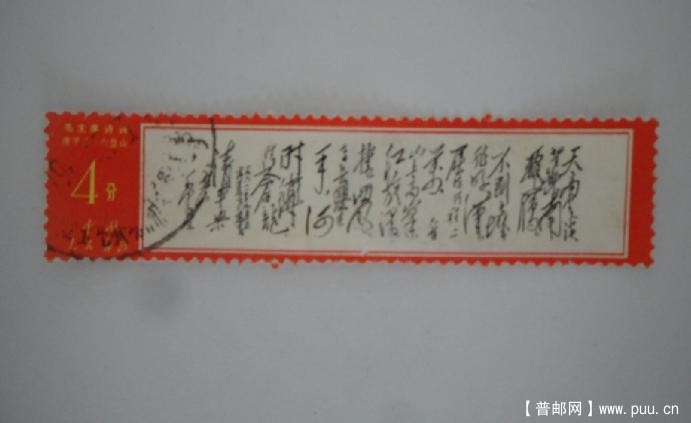 毛主席诗词
清平乐 六盘山
4分
天高云淡
望断南
飞雁
不到长城
非好汉
屈指行程二
万 六
盘山上高峰
红旗漫
卷西风
今日长缨在
手 何
时缚住
苍龙
清平乐
毛泽东
【普邮网】www.puu.cn